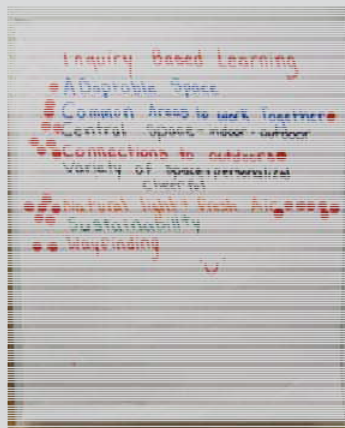 Inquiry Based Learning
Adaptable Space
Common Areas to work Together
Central Space - indoor - outdoor
Connections to outdoors
Variety of Space + personalized
cheerful
Natural light + Fresh Air
Sustainability
Wayfinding